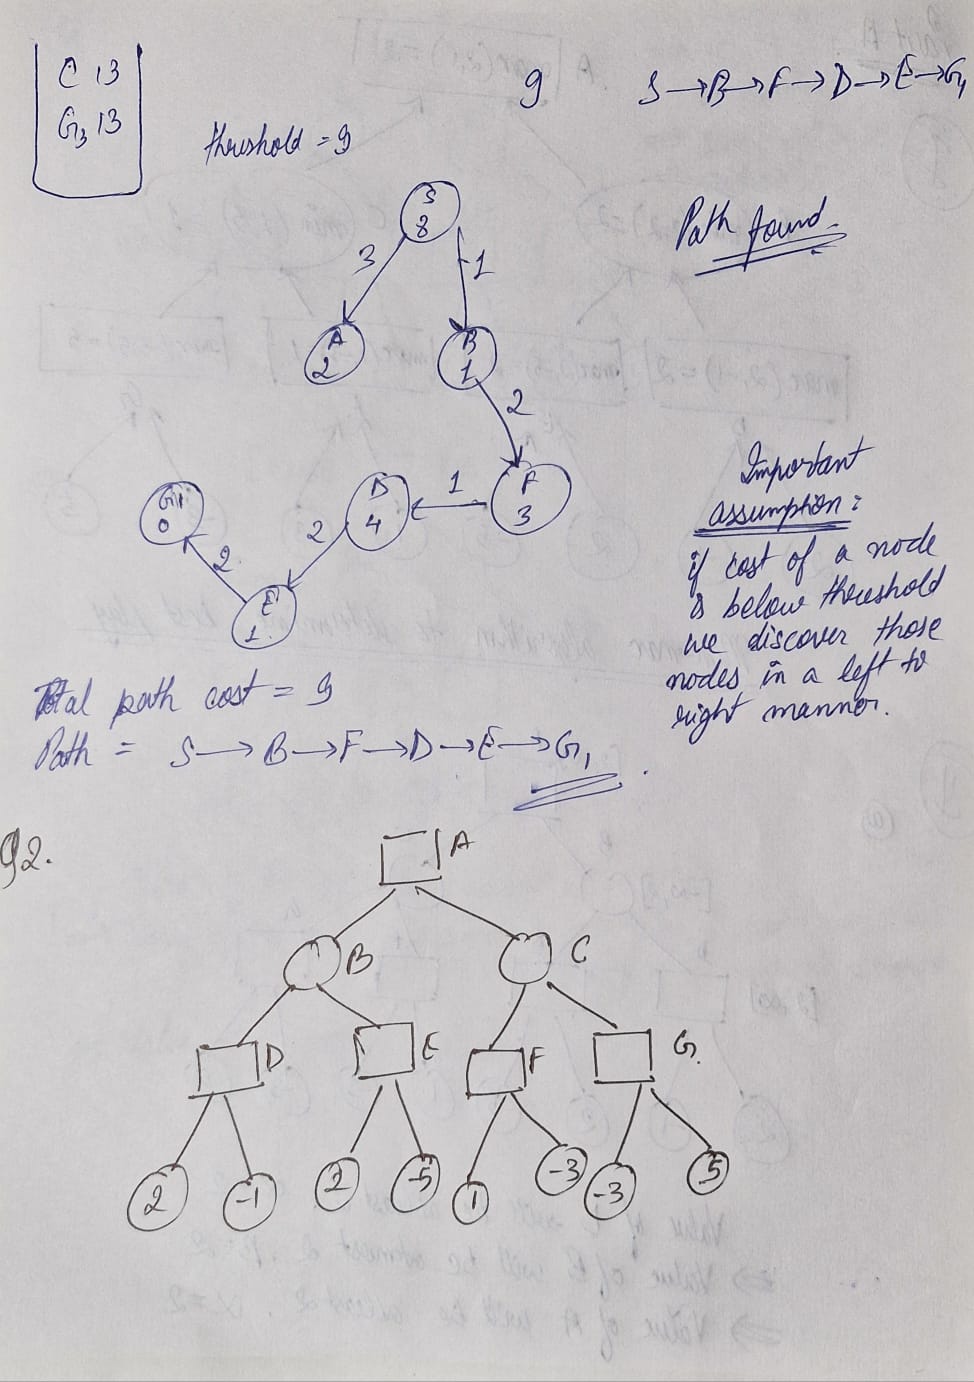 C 13
G3 13
9 S → B → F → D → E → G1
threshold = 9
S
8
3
1
Path found.
A
2
B
1
2
G1
0
D
4
1
F
3
2
2
E
1
Important
assumption:
if cost of a node
is below threshold
we discover those
nodes in a left to
right manner.
Total path cost = 9
Path = S → B → F → D → E → G1
Q2.
A
B
C
D
E
F
G
2
-1
2
-5
1
-3
-3
5